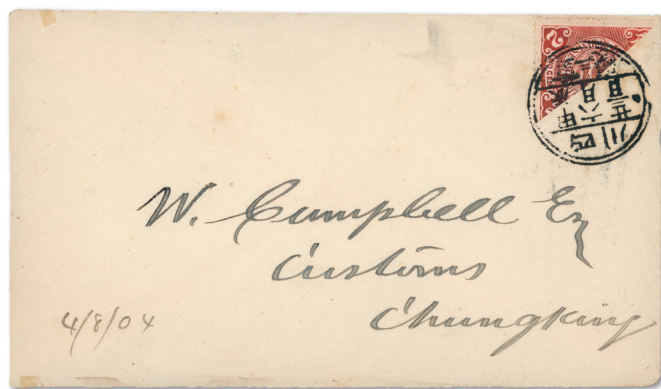 2
四川
甲
六月
廿三日
W. Campbell Esq
Customs
Chungking
4/8/04